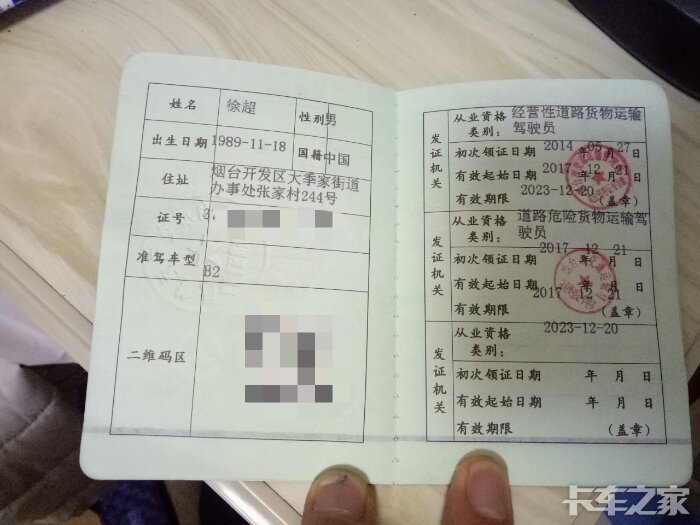 姓名 徐超 性别 男
出生日期 1989-11-18 国籍 中国
住址 烟台开发区大季家街道
办事处张家村244号
证号
准驾车型 B2
二维码区
发证机关
从业资格类别: 经营性道路货物运输
驾驶员
初次领证日期 2014年05月27日
有效起始日期 2017年12月21日
有效期限 2023-12-20 (盖章)
发证机关
从业资格类别: 道路危险货物运输驾
驶员
初次领证日期 2017年12月21日
有效起始日期 2017年12月21日
有效期限 (盖章)
发证机关
从业资格类别: 2023-12-20
初次领证日期 年 月 日
有效起始日期 年 月 日
有效期限 (盖章)
卡车之家